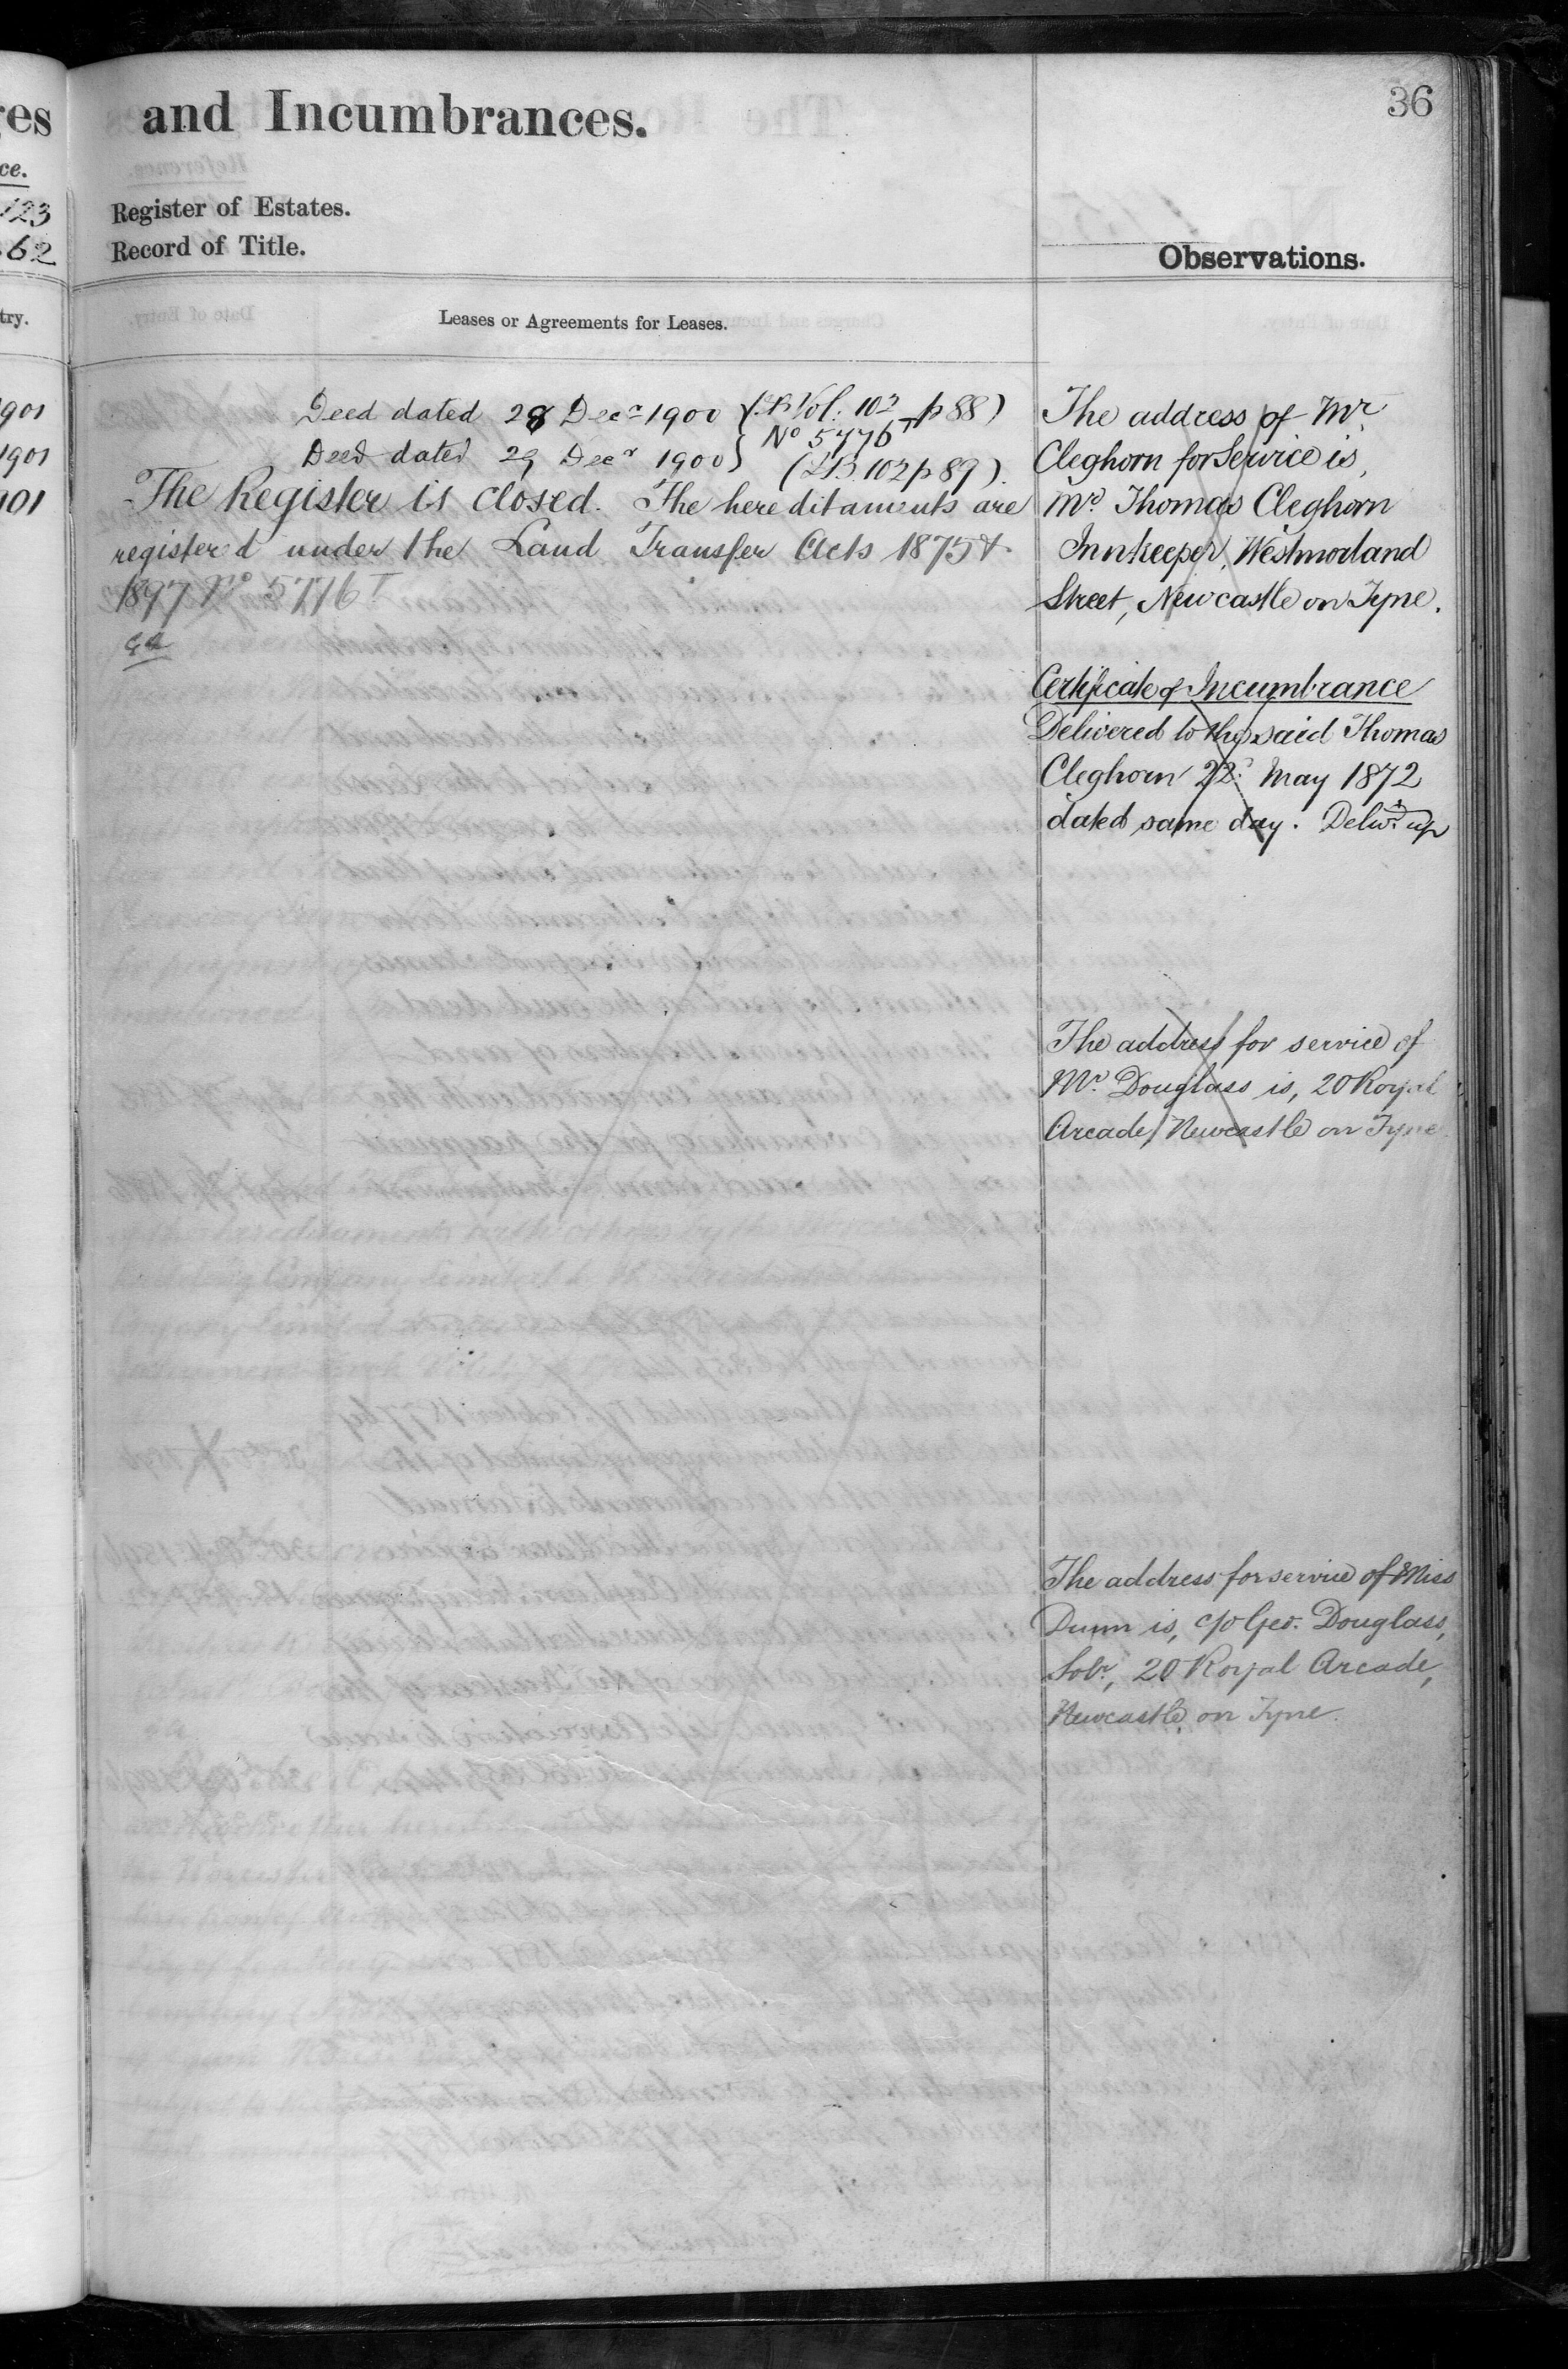 36
and Incumbrances.
Register of Estates.
Record of Title.
Observations.
Leases or Agreements for Leases.
Deed dated 28 Decr 1900 (LB Vol. 102 p 88)
No 5776T
Deed dated 29 Decr 1900 (LB. 102 p 89).
The Register is closed. The hereditaments are
register'd under the Land Transfer Acts 1875 &
1897 No 5776T
The address of Mr
Cleghorn for Service is,
Mr Thomas Cleghorn
Innkeeper, Westmorland
Street, Newcastle on Tyne.
Certificate of Incumbrance
Delivered to the said Thomas
Cleghorn 22d May 1872
dated same day. Delivd up
The address for service of
Mr. Douglass is, 20 Royal
Arcade, Newcastle on Tyne
The address for service of Miss
Dunn is, c/o Geo. Douglass,
Solr, 20 Royal Arcade,
Newcastle on Tyne.
ces
ce.
123
62
try.
1901
1901
101